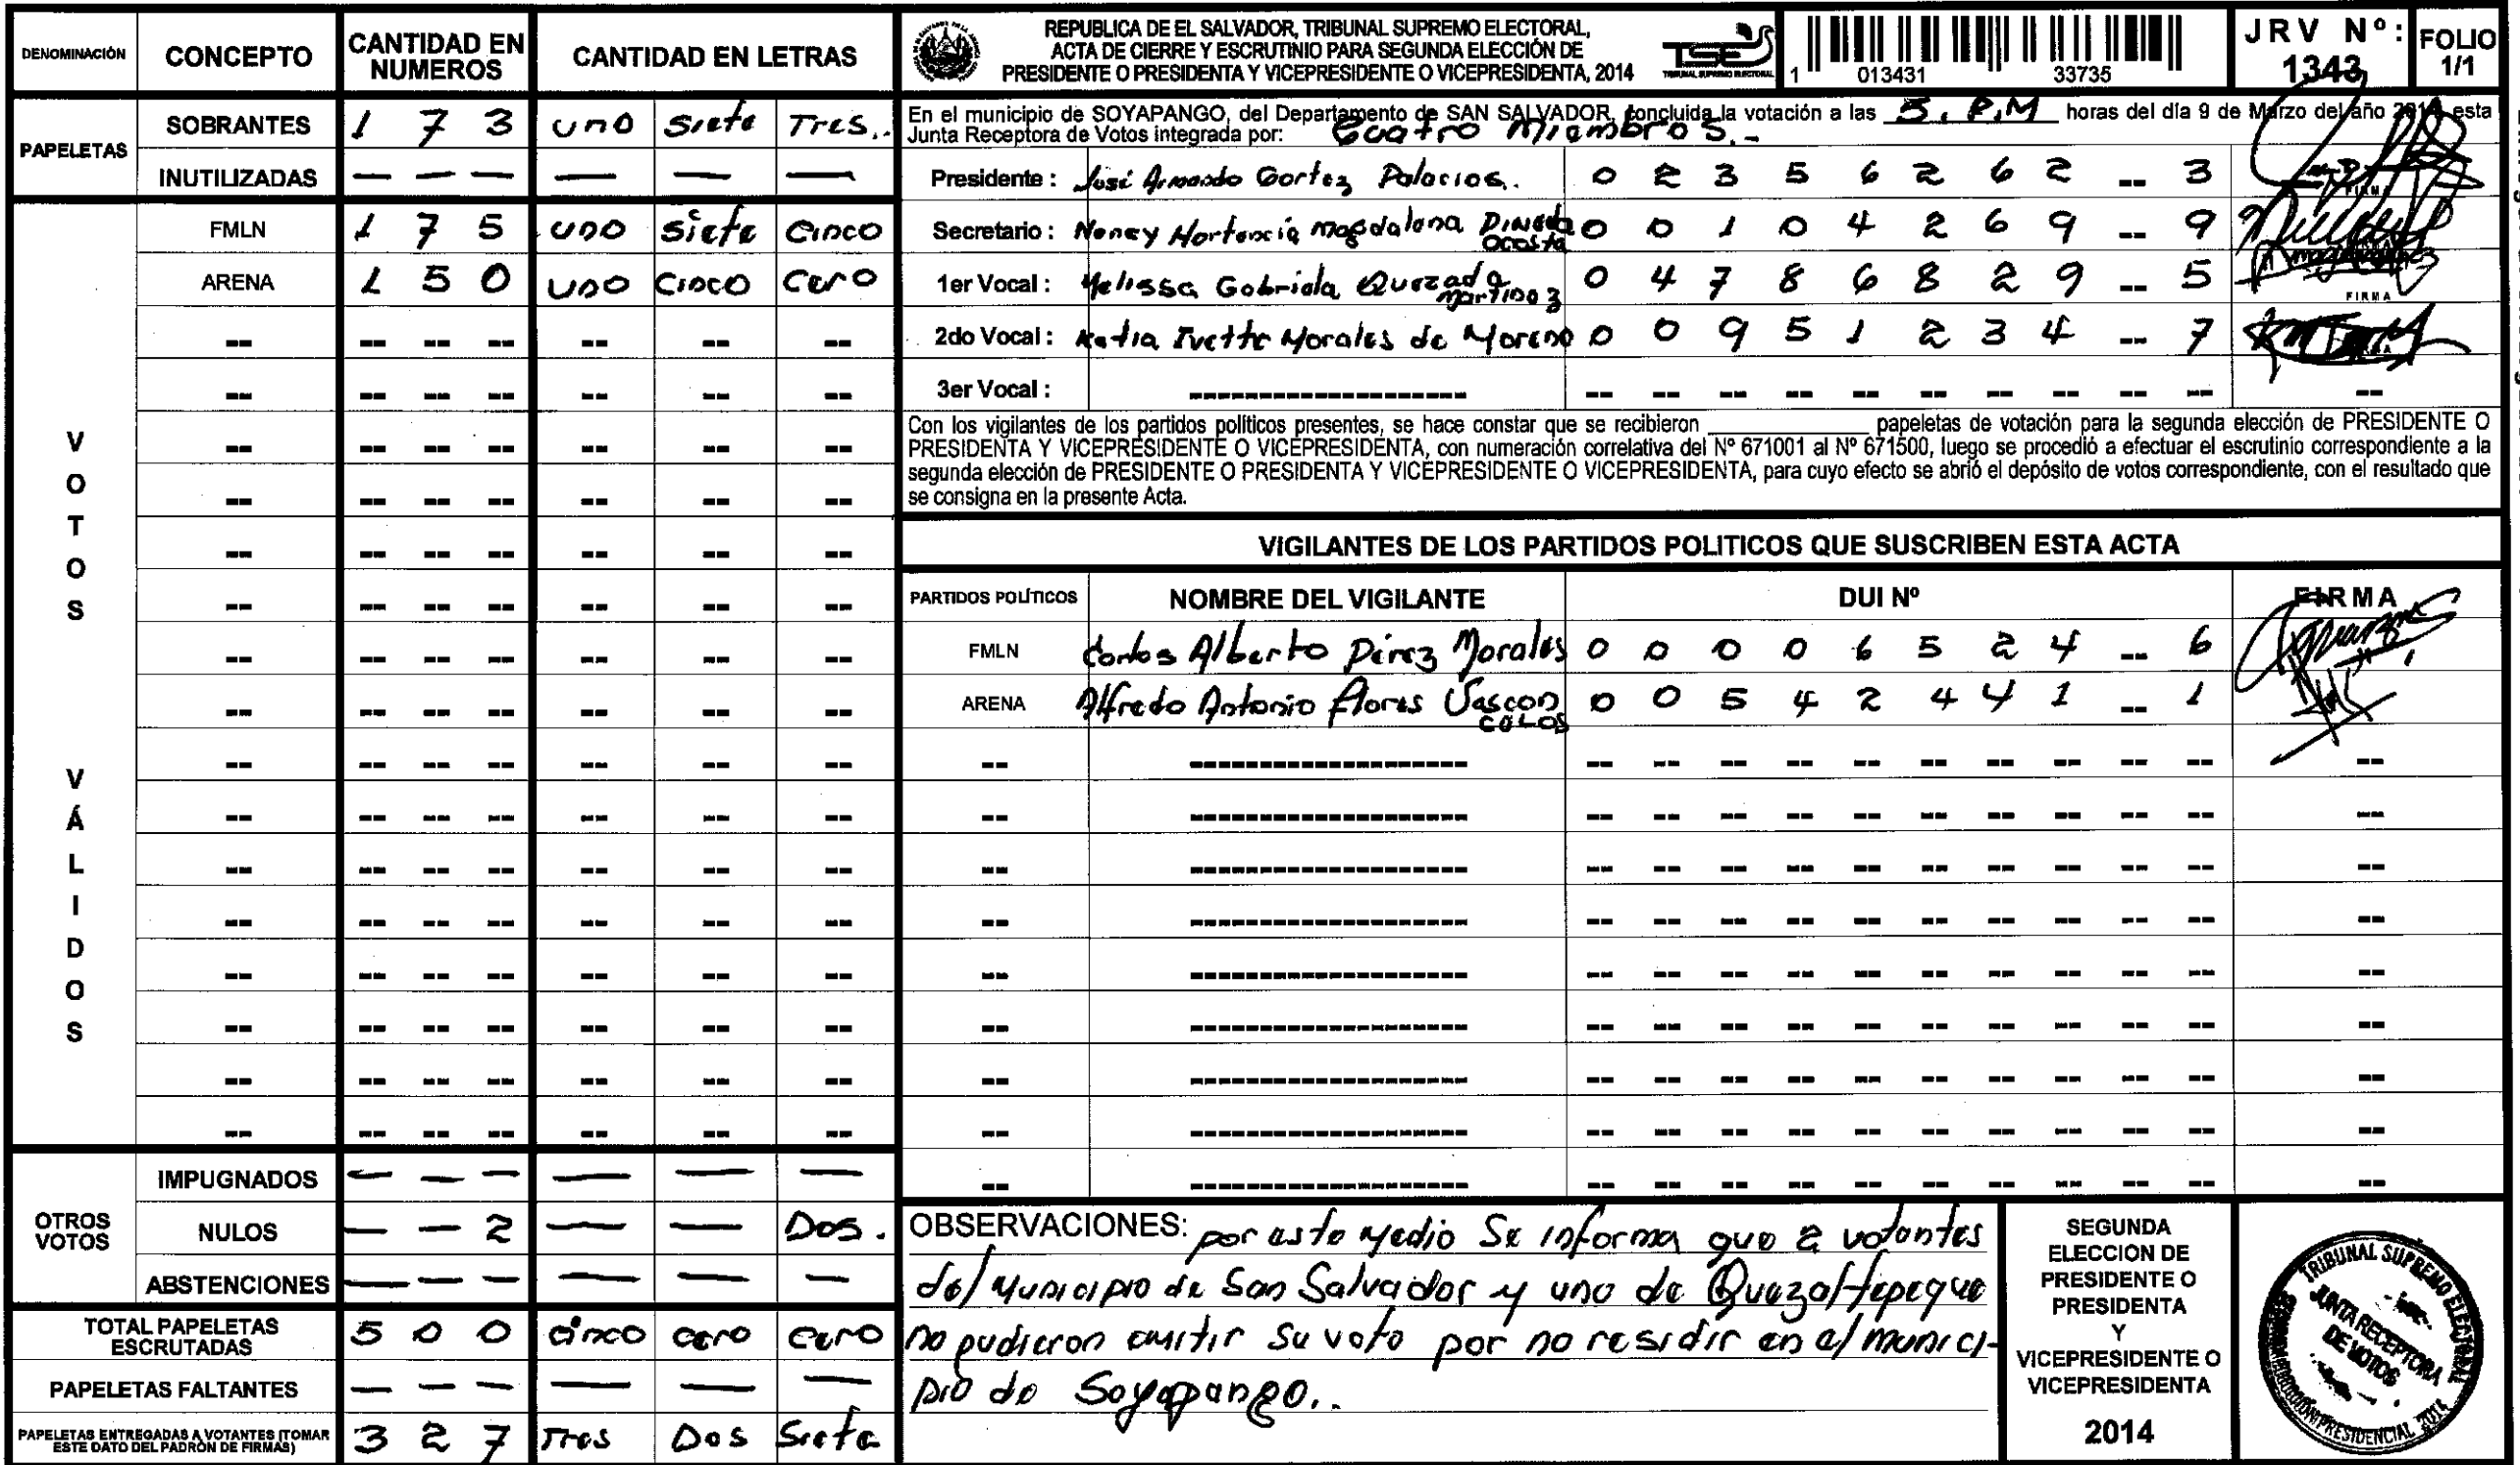 DENOMINACIÓN CONCEPTO CANTIDAD EN NUMEROS CANTIDAD EN LETRAS
PAPELETAS
SOBRANTES 1 7 3 uno Siete Tres..
INUTILIZADAS — — — — — —
VOTOS VÁLIDOS
FMLN 1 7 5 uno Siete Cinco
ARENA 1 5 0 uno Cinco Cero
OTROS VOTOS
IMPUGNADOS — — — — — —
NULOS — — 2 — — Dos.
ABSTENCIONES — — — — — —
TOTAL PAPELETAS ESCRUTADAS 5 0 0 cinco cero cero
PAPELETAS FALTANTES — — — — — —
PAPELETAS ENTREGADAS A VOTANTES (TOMAR ESTE DATO DEL PADRÓN DE FIRMAS) 3 2 7 Tres Dos Siete
REPUBLICA DE EL SALVADOR, TRIBUNAL SUPREMO ELECTORAL,
ACTA DE CIERRE Y ESCRUTINIO PARA SEGUNDA ELECCIÓN DE
PRESIDENTE O PRESIDENTA Y VICEPRESIDENTE O VICEPRESIDENTA, 2014
TSE
TRIBUNAL SUPREMO ELECTORAL
1 013431 33735
JRV Nº: 1343
FOLIO 1/1
En el municipio de SOYAPANGO, del Departamento de SAN SALVADOR, concluida la votación a las 5. P.M horas del día 9 de Marzo del año 2014 esta
Junta Receptora de Votos integrada por: Cuatro Miembros.-
Presidente : José Armando Cortez Palacios. 0 2 3 5 6 2 6 2 -- 3 FIRMA
Secretario : Nancy Hortencia Magdalena Pineda Acosta 0 0 1 0 4 2 6 9 -- 9
1er Vocal : Melissa Gabriela Quezada Martinez 0 4 7 8 6 8 2 9 -- 5 FIRMA
2do Vocal : Katia Ivette Morales de Moreno 0 0 9 5 1 2 3 4 -- 7
3er Vocal : -------------------
Con los vigilantes de los partidos políticos presentes, se hace constar que se recibieron ____________ papeletas de votación para la segunda elección de PRESIDENTE O
PRESIDENTA Y VICEPRESIDENTE O VICEPRESIDENTA, con numeración correlativa del Nº 671001 al Nº 671500, luego se procedió a efectuar el escrutinio correspondiente a la
segunda elección de PRESIDENTE O PRESIDENTA Y VICEPRESIDENTE O VICEPRESIDENTA, para cuyo efecto se abrió el depósito de votos correspondiente, con el resultado que
se consigna en la presente Acta.
VIGILANTES DE LOS PARTIDOS POLITICOS QUE SUSCRIBEN ESTA ACTA
PARTIDOS POLÍTICOS NOMBRE DEL VIGILANTE DUI Nº FIRMA
FMLN Carlos Alberto Pérez Morales 0 0 0 0 6 5 2 4 -- 6
ARENA Alfredo Antonio Flores Vasconcelos 0 0 5 4 2 4 4 1 -- 1
OBSERVACIONES: por este Medio Se informa que 2 votantes
del Municipio de San Salvador y uno de Quezaltepeque
no pudieron emitir su voto por no residir en el munici-
pio de Soyapango..
SEGUNDA
ELECCION DE
PRESIDENTE O
PRESIDENTA
Y
VICEPRESIDENTE O
VICEPRESIDENTA
2014
TRIBUNAL SUPREMO ELECTORAL
JUNTA RECEPTORA
DE VOTOS
PRESIDENCIAL 2014